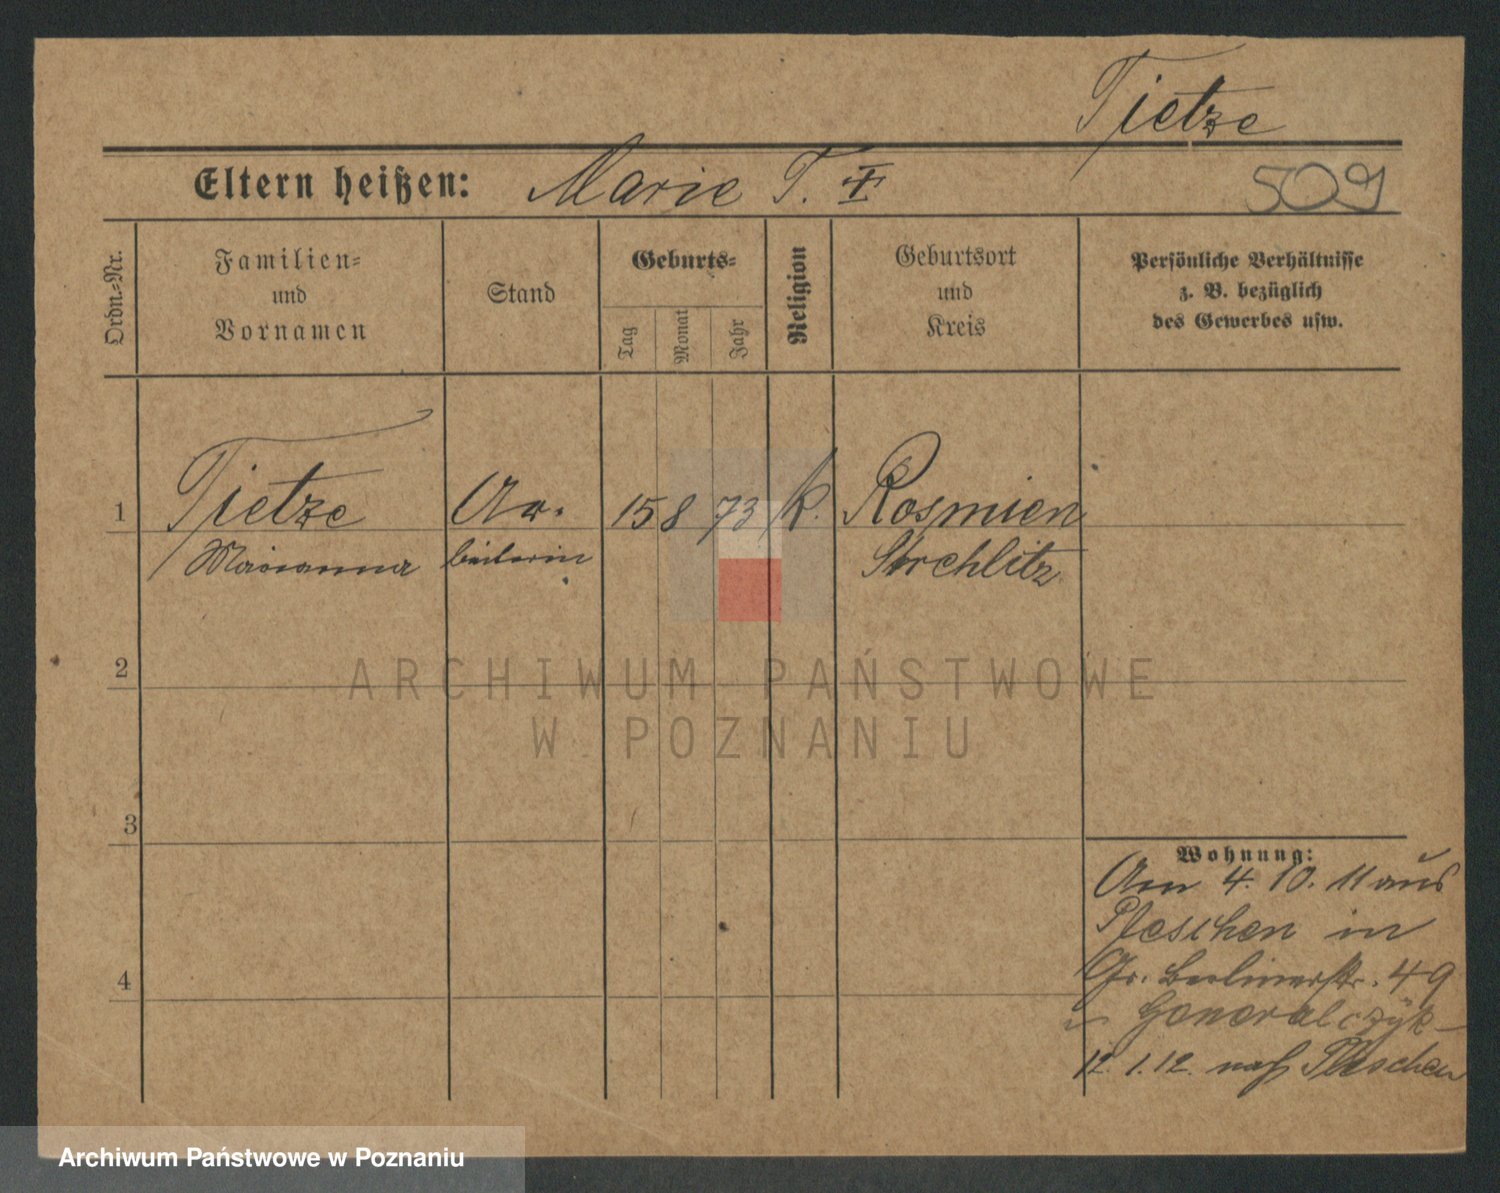 Tietze
Eltern heißen: Marie T. ‡
509
Ordn.-Nr.
Familien-
und
Vornamen
Stand
Geburts-
Tag
Monat
Jahr
Religion
Geburtsort
und
Kreis
Persönliche Verhältnisse
z. B. bezüglich
des Gewerbes usw.
1 Tietze Ar- 15 8 73 k. Rosmien
Marianna beiterin Strehlitz
2
ARCHIWUM PAŃSTWOWE
W POZNANIU
3
Wohnung:
Am 4. 10. 11 aus
Pleschen in
Gr. Berlinerstr. 49
Generalczyk
12. 1. 12. nach Pleschen
4
Archiwum Państwowe w Poznaniu